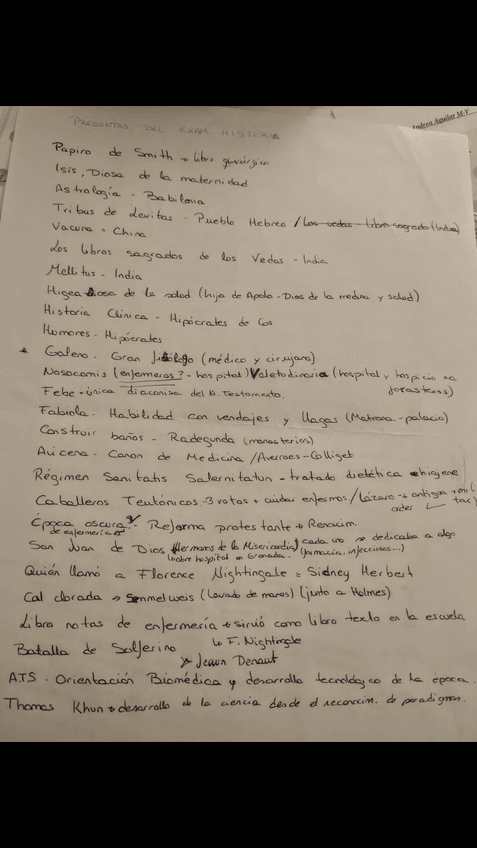 Andrea Aguilar M-V
PREGUNTAS DEL EXAM. HISTORIA
Papiro de Smith → libro quirúrgico
Isis, Diosa de la maternidad
Astrología - Babilonia
Tribus de Levitas - Pueblo Hebreo / Los vedas - libro sagrado (India)
Vacuna = China
Los libros sagrados de los Vedas - India
Mellitus - India
Higea diosa de la salud (hija de Apolo - Dios de la medina y salud)
Historia Clínica - Hipócrates de Cos
Humores - Hipócrates
* Galeno - Gran (médico y cirujano)
Nosocomis (enfermeros? - hospital) Valetudinaria (hospital y hospicio xa forasteros)
Febe - única diaconisa del N. Testamento.
Fabiola - Habilidad con vendajes y llagas (Matrona - palacio)
Construir baños - Radegunda (monasterios)
Avicena - Canon de Medicina / Averroes - Colliget
Régimen Sanitatis Salernitatun - tratado dietética e higiene
Caballeros Teutónicos - 3 votos + cuidar enfermos / Lázaro → antigua orden
Época oscura de enfermería? Reforma protestante + Renacim.
San Juan de Dios (Hermanos de la Misericordia) cada uno se dedicaba a algo
(abre hospital en Granada. (farmacia, infecciosos...)
Quién llamó a Florence Nightingale = Sidney Herbert
Cal clorada → Semmelweis (lavado de manos) (junto a Holmes)
Libro notas de enfermería → sirvió como libro texto en la escuela
↳ F. Nightingale
Batalla de Solferino
↘ Jeaun Denaut
ATS - Orientación Biomédica y desarrollo tecnológico de la época.
Thomas Khun → desarrollo de la ciencia desde el reconocim. de paradigmas.